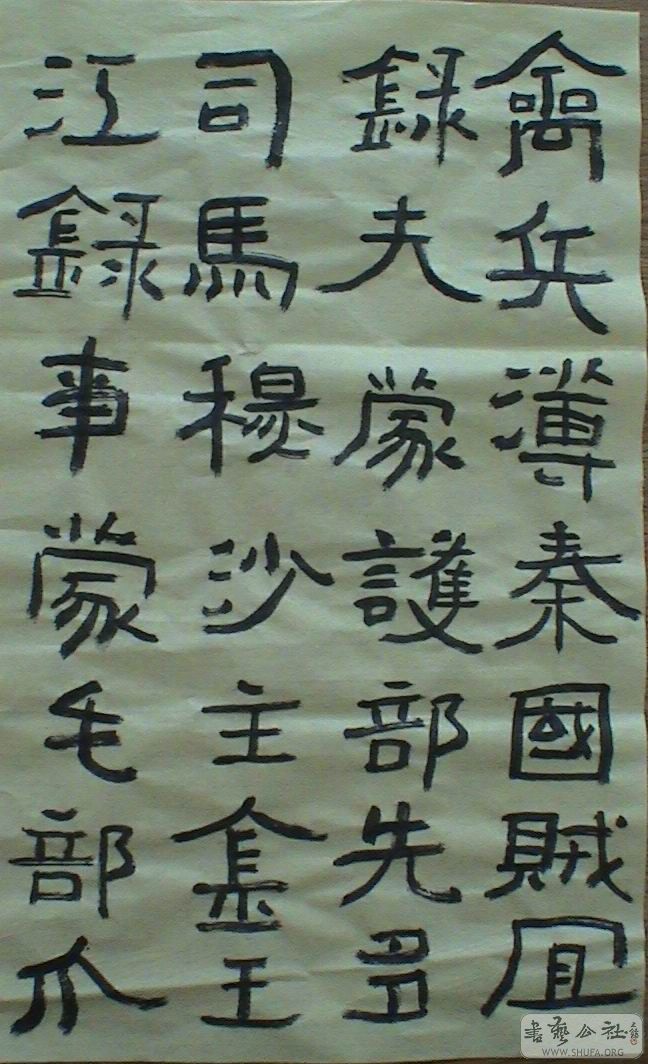 禽兵薄秦國賊宜
録夫蒙護部先多
司馬穆沙主金王
江録事蒙毛部爪
書藝公社
WWW.SHUFA.ORG